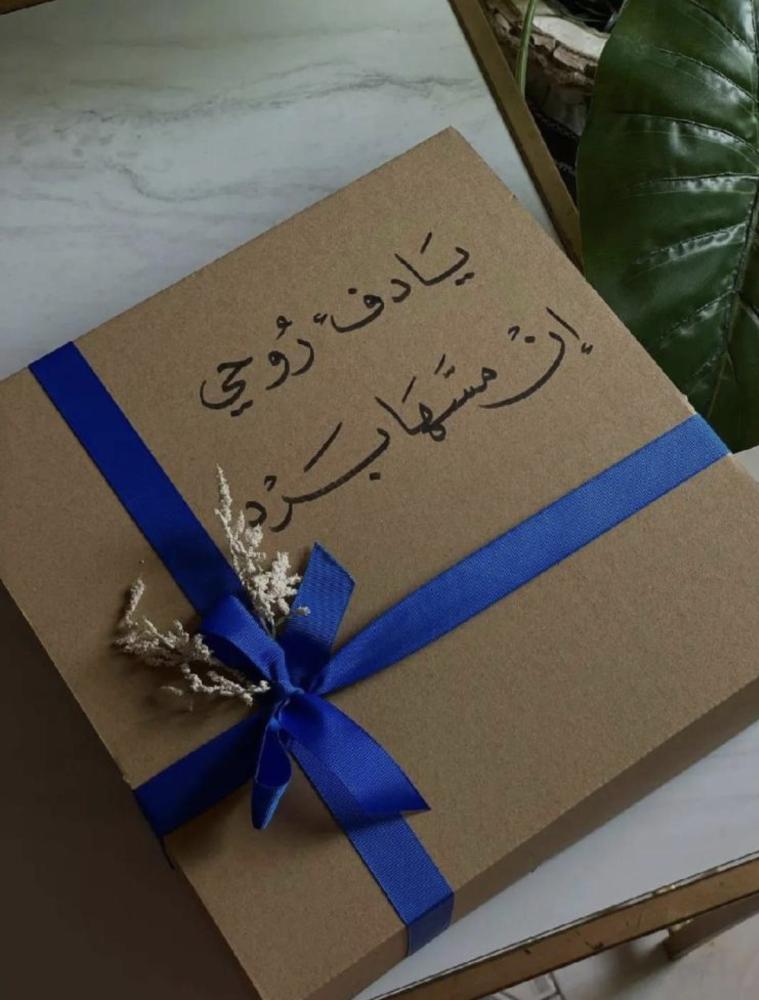 يَادفءَ رُوحي
إنْ مسَّهَا بَرْد